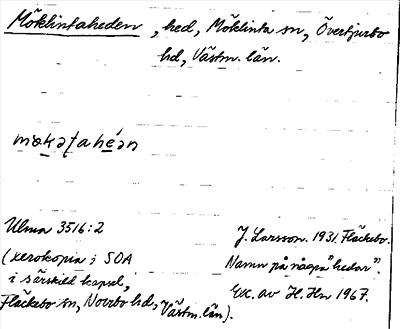 Möklintaheden, hed, Möklinta sn, Övertjurbo
hd, Västm. län.
mökəʈahéən
Ulma 3516:2
(xerokopia i SOA
i särskild kapsel,
Fläckebo sn, Norrbo hd, Västm. län).
J. Larsson. 1931. Fläckebo.
Namn på några "hedar".
Exc. av H. Hn 1967.